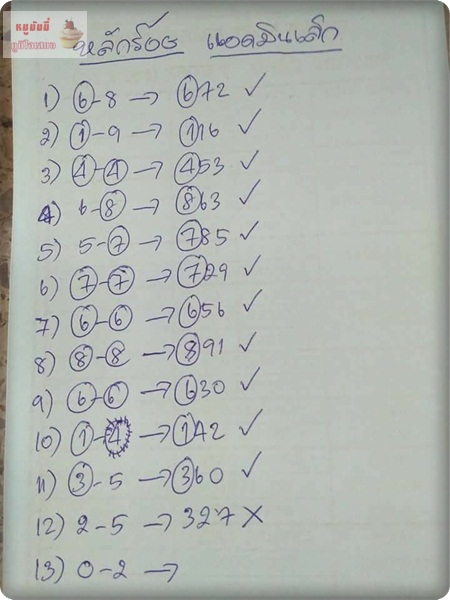 หมูบันบี้
หลักร้อย แอดมินเด็ก
1) 6-8 → 672 ✓
2) 1-9 → 116 ✓
3) 4-4 → 453 ✓
4) 6-8 → 863 ✓
5) 5-7 → 785 ✓
6) 7-7 → 729 ✓
7) 6-6 → 656 ✓
8) 8-8 → 891 ✓
9) 6-6 → 630 ✓
10) 1-4 → 142 ✓
11) 3-5 → 360 ✓
12) 2-5 → 327 X
13) 0-2 →